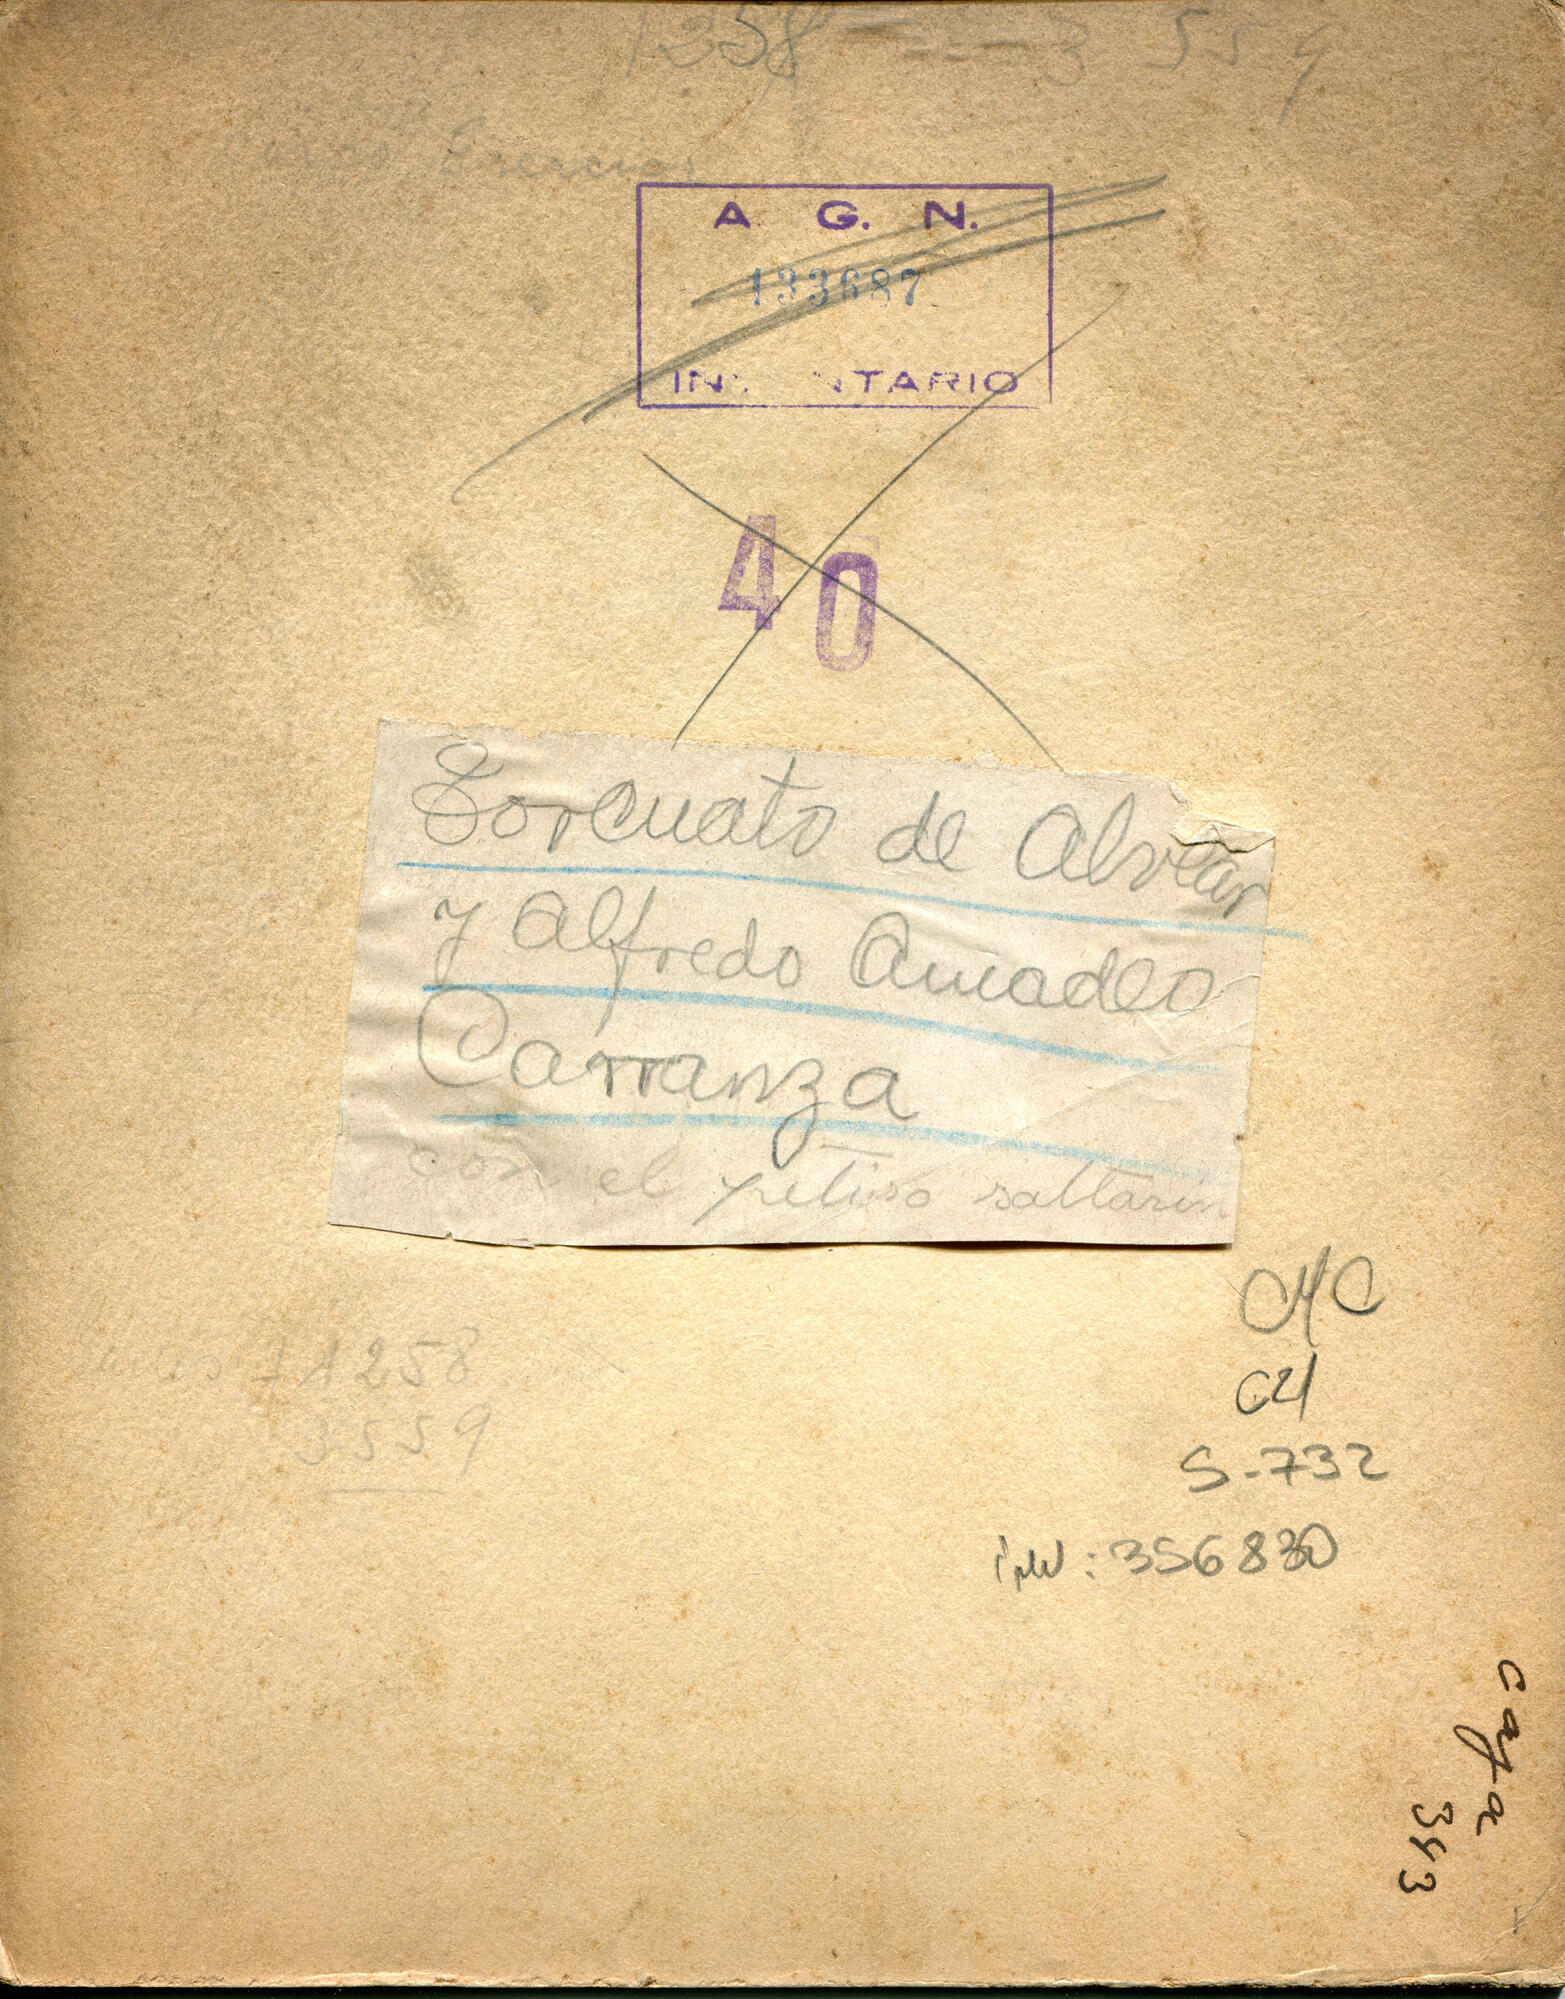 1258 3559
A. G. N.
133687
INVENTARIO
40
Torcuato de Alvear
y Alfredo Amadeo
Carranza
con el petiso saltarin
1258
3559
S-732
inv: 356830
caja
343